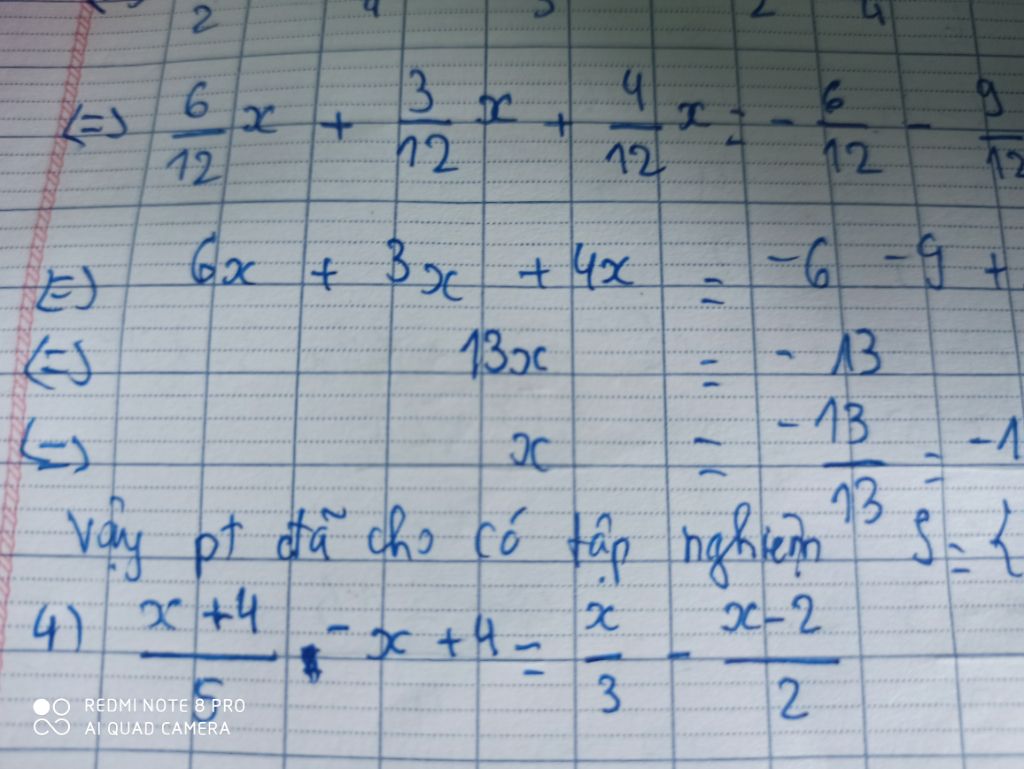 (=) 6/12 x + 3/12 x + 4/12 x = - 6/12 - 9/12
(=) 6x + 3x + 4x = -6 -9 +
(=) 13x = - 13
(=) x = -13/13 = -1
Vậy pt đã cho có tập nghiệm S = {
4) x+4/5 - x + 4 = x/3 - x-2/2
REDMI NOTE 8 PRO
AI QUAD CAMERA